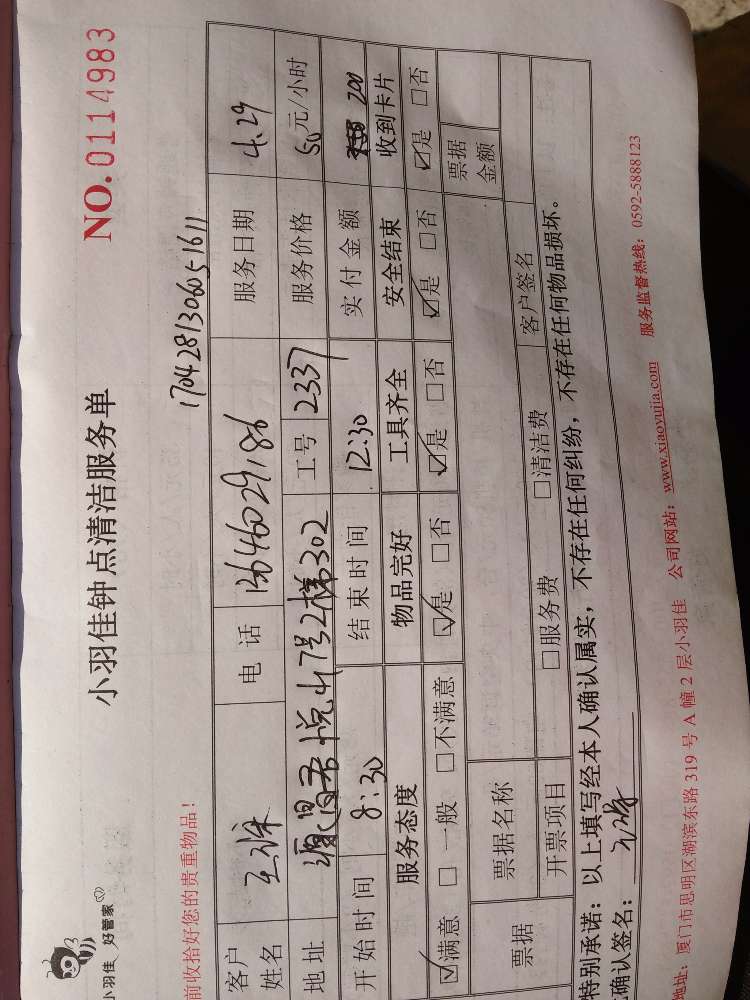 小羽佳 好管家
小羽佳钟点清洁服务单
NO.0114983
前收拾好您的贵重物品！
1704281306051611
客户姓名 王 电话 13646029186 服务日期 4.29
地址 山17号2梯302 工号 2337 服务价格 50元/小时
开始时间 8:30 结束时间 12:30 实付金额 200
服务态度 物品完好 工具齐全 安全结束 收到卡片
☑满意 □一般 □不满意 ☑是 □否 ☑是 □否 ☑是 □否 ☑是 □否
票据 票据名称 票据金额
开票项目 □服务费 □清洁费 客户签名
特别承诺：以上填写经本人确认属实，不存在任何纠纷，不存在任何物品损坏。
确认签名：
地址：厦门市思明区湖滨东路319号A幢2层小羽佳 公司网站：www.xiaoyujia.com 服务监督热线：0592-5888123